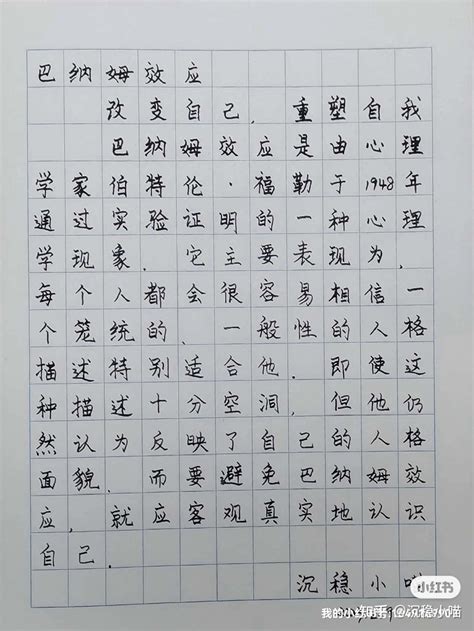 巴纳姆效应
改变自己，重塑自我
巴纳姆效应是由心理
学家伯特伦·福勒于1948年
通过实验证明的一种心理
学现象．它主要表现为，
每个人都会很容易相信一
个笼统的、一般性的人格
描述特别适合他．即使这
种描述十分空洞，但他仍
然认为反映了自己的人格
面貌．而要避免巴纳姆效
应，就应客观真实地认识
自己．
沉稳小喵
小红书
知乎 @沉稳小喵